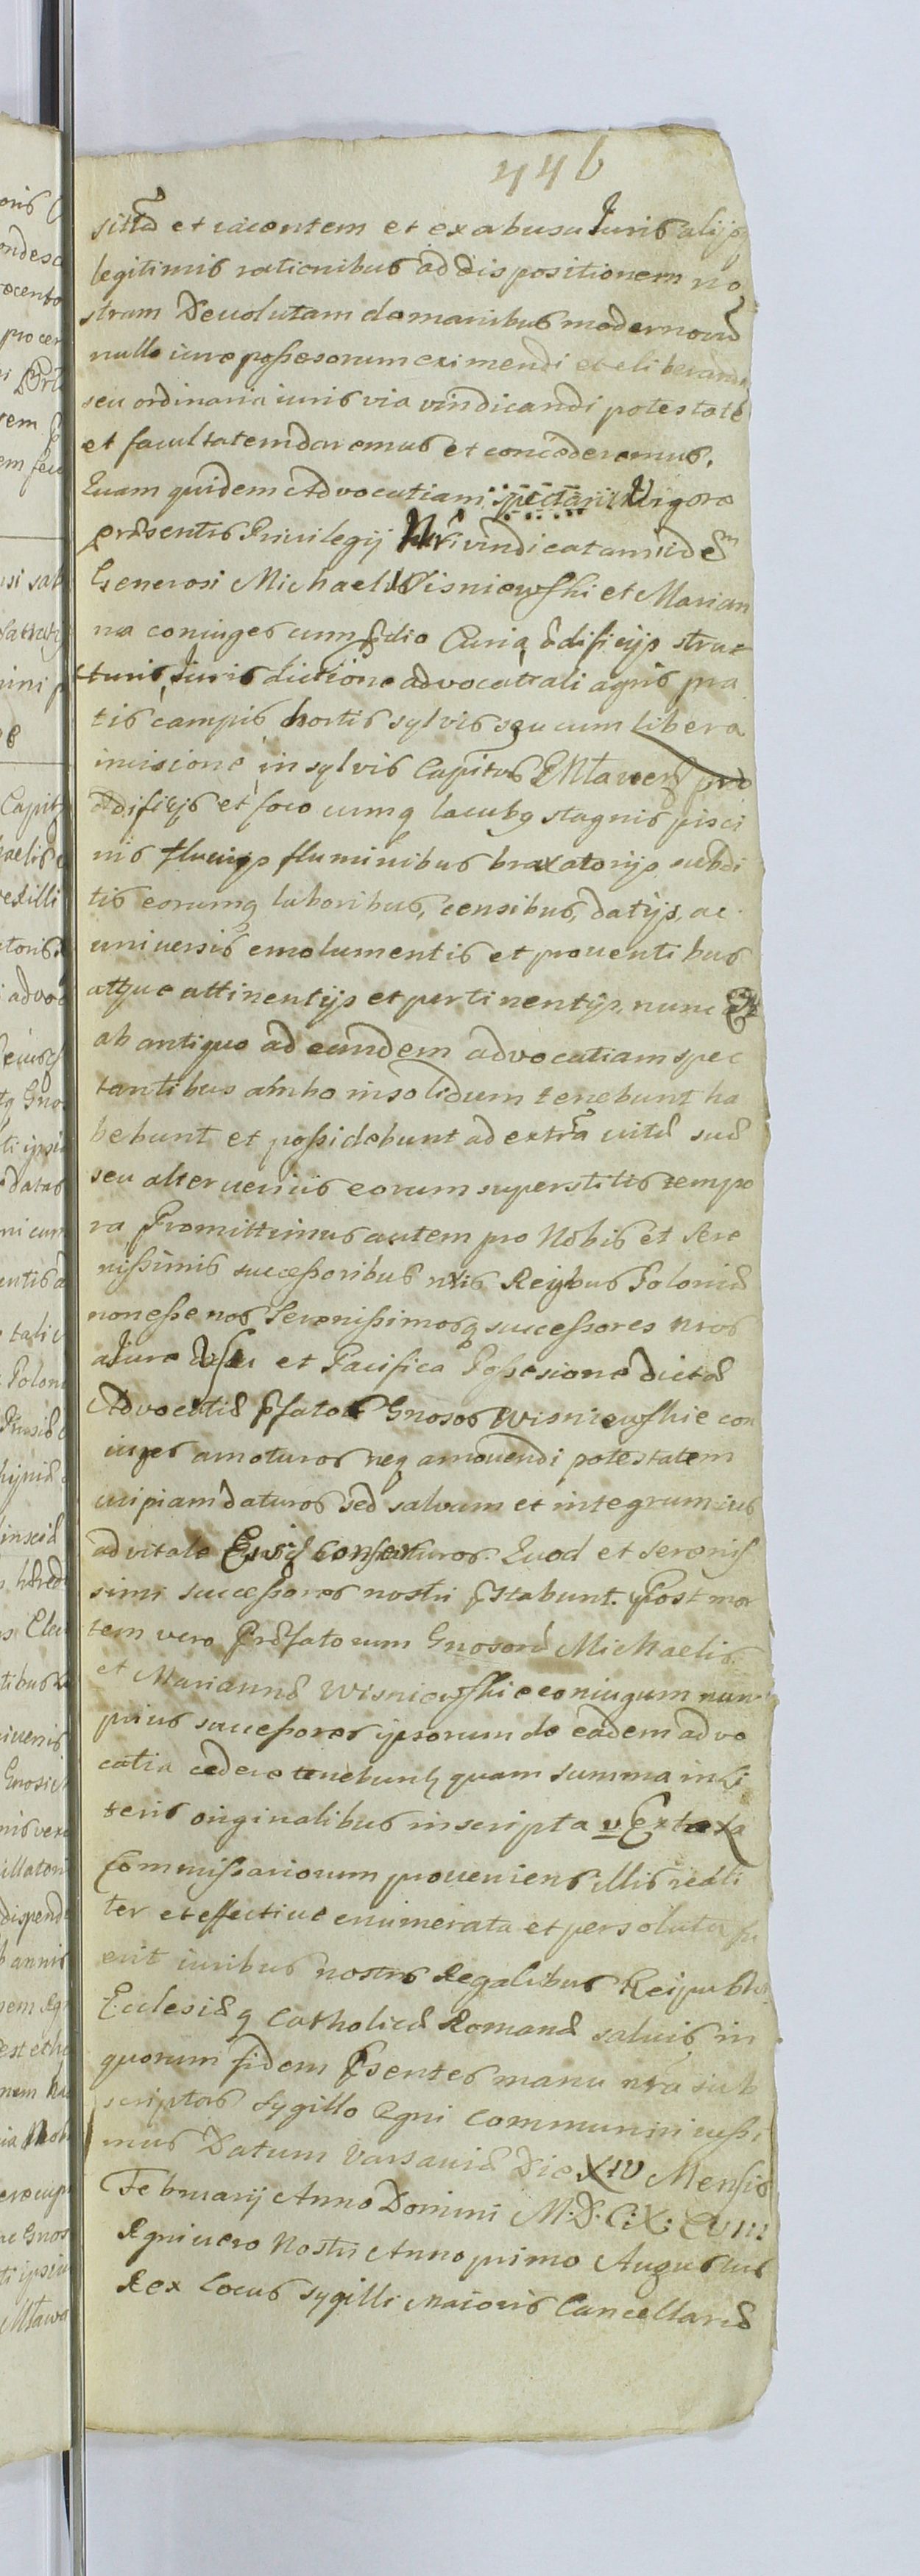 446
sitã et iacentem et ex abusu Iuris alijsq
legitimis rationibus ad dispositionem no
stram Devolutam de manibus modernorũ
nullo iure possesorum eximendi et eliberandi
seu ordinaria iuris via vindicandi potestatẽ
et facultatem daremus et concederemus.
Quam quidem Advocatiam spectari Vigore
præsentis Privilegij Nri vindicatam iidẽm
Generosi Michael Wisniewski et Marian
na coniuges cum prædio Curia ædificijs struc
turis, Iurisdictione advocatiali agris pra
tis campis hortis sylvis seu cum libera
incisione in sylvis Capitus Mlaven pro
ædificijs et foco cumq lacubq stagnis pisci
nis fluvijs fluminibus braxatorijs subdi
tis eorumq laboribus, censibus, datijs, ac
universis emolumentis et proventibus
atque attinentijs et pertinentijs, nunc Et
ab antiquo ad eandem advocatiam spec
tantibus ambo insolidum tenebunt ha
bebunt et possidebunt ad extrã vitæ suæ
seu alterverius eorum superstitis tempo
ra, Promittimus autem pro Nobis et Sere
nissimis successoribus nris Regibus Poloniæ
non esse nos Serenissimosq successores nros
a Iure Usu et Pacifica Possesione dictæ
Advocatiæ pfatos Gnosos Wisniewskie con
iuges amoturos neq amovendi potestatem
cuipiam daturos sed salvum et integrum ius
advitale conservaturos. Quod et serenis
simi successores nostri pstabunt. Post mor
tem vero Præfatorum Gnosorũ Michaelis
et Mariannæ Wisniewskie coniugum non
prius successores ipsorum de eadem advo
catia cedere tenebunt, quam summa in Li
teris originalibus inscripta v Ex taxa
Commissariorum proveniens illis reali
ter et effective enumerata et persoluta fu
erit iuribus nostris Regalibus Reipubl
Ecclesiæq Catholicæ Romanæ salvis, in
quorum fidem Psentes manu nra sub
scriptas Sygillo Rgni communiri iussi
mus Datum Varsaviæ Die XIV Mensis
Februarij Anno Domini M.D.C.X.CVIII
Rgni vero Nostri Anno primo Augustus
Rex Locus sygilli Maioris Cancellariæ